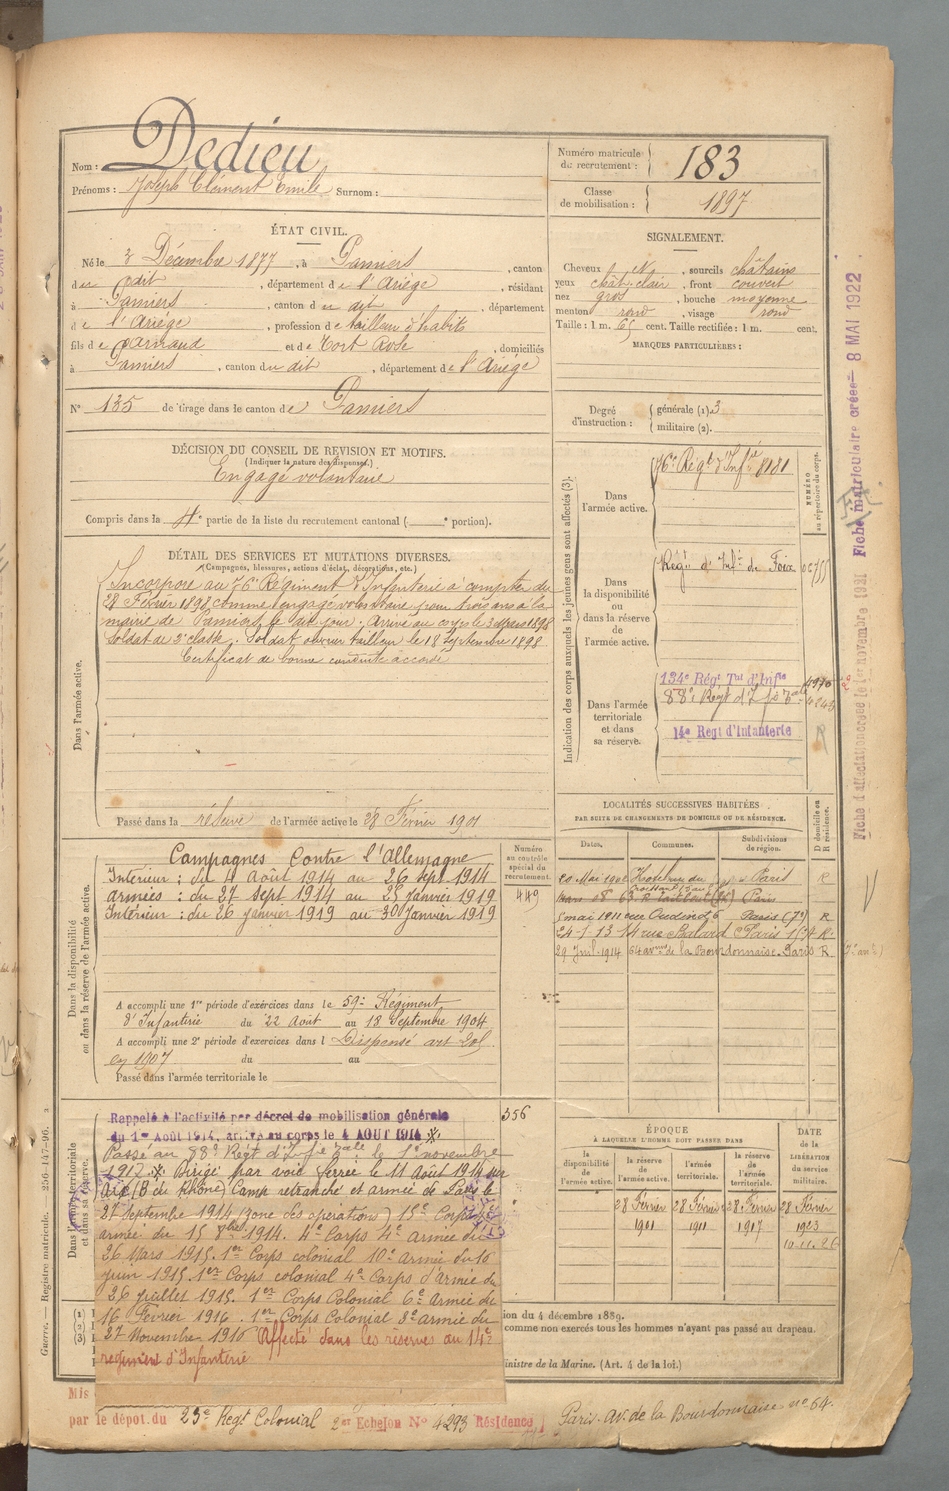 Nom : Dedieu
Prénoms : Joseph Clément Emile Surnom :
Numéro matricule
du recrutement : 183
Classe
de mobilisation : 1897
ÉTAT CIVIL.
Né le 3 Décembre 1877, à Pamiers, canton
du dit, département de l'Ariège, résidant
à Pamiers, canton du dit, département
de l'Ariège, profession de tailleur d'habits
fils de Arnaud et de Tort Rose, domiciliés
à Pamiers, canton du dit, département de l'Ariège
N° 135 de tirage dans le canton de Pamiers
SIGNALEMENT.
Cheveux , sourcils châtains
yeux chât. clair, front couvert
nez gros, bouche moyenne
menton rond, visage rond
Taille : 1 m. 65 cent. Taille rectifiée : 1 m. cent.
MARQUES PARTICULIÈRES :
Degré
d'instruction :
générale (1). 3
militaire (2).
DÉCISION DU CONSEIL DE REVISION ET MOTIFS.
(Indiquer la nature des dispenses.)
Engagé volontaire
Compris dans la 4e partie de la liste du recrutement cantonal ( e portion).
DÉTAIL DES SERVICES ET MUTATIONS DIVERSES.
(Campagnes, blessures, actions d'éclat, décorations, etc.)
Dans l'armée active.
Incorporé au 76e Régiment d'Infanterie à compter du
28 Février 1898, comme engagé volontaire pour trois ans à la
mairie de Pamiers, le dit jour. Arrivé au corps le 3 Mars 1898
soldat de 2e classe. Soldat ouvrier tailleur le 18 Septembre 1898
Certificat de bonne conduite accordé
Passé dans la réserve de l'armée active le 28 Février 1901
Indication des corps auxquels les jeunes gens sont affectés (3).
NUMÉRO
au répertoire du corps.
Dans
l'armée active.
76e Régt d'Infie 8181
Dans
la disponibilité
ou
dans la réserve
de
l'armée active.
Régt d'Infie de Foix
Dans l'armée
territoriale
et dans
sa réserve.
134e Régt Tal d'Infie
88e Regt d'Ifie Tale
14e Regt d'Infanterie
R
Fiche d'affectation créée le 1er novembre 1921 Fiche matriculaire créée 8 MAI 1922
LOCALITÉS SUCCESSIVES HABITÉES
PAR SUITE DE CHANGEMENTS DE DOMICILE OU DE RÉSIDENCE.
Dates. Communes. Subdivisions
de région.
D domicile ou
R résidence.
20 Mai 1902 Paris R
Mars 08 63 R Taitbout Paris
5 mai 1911 rue Oudinot 6 Paris (7e) R
24-1-13 14 rue Balard Paris R
29 Juil. 1914 64 avue de la Bourdonnaise. Paris R
Dans la disponibilité
ou dans la réserve de l'armée active.
Numéro
au contrôle
spécial du
recrutement.
449
Campagnes Contre l'Allemagne
Intérieur : du 4 août 1914 au 26 sept 1914
armées : du 27 sept 1914 au 25 janvier 1919
Intérieur : du 26 janvier 1919 au 30 Janvier 1919
A accompli une 1re période d'exercices dans le 59e Régiment
d'Infanterie du 22 Août au 18 Septembre 1904
A accompli une 2e période d'exercices dans l Dispensé
en 1907 du au
Passé dans l'armée territoriale le
Dans l'armée territoriale
et dans sa réserve.
356
Rappelé à l'activité par décret de mobilisation générale
du 1er Août 1914, arrivé au corps le 4 AOUT 1914
Passé au 88e Régt d'Ifie Tale le 1er novembre
1912. Dirigé par voie ferrée le 11 Août 1914 sur
Aix (B. du Rhône) Camp retranché et armée de Paris le
27 septembre 1914 (zone des opérations) 15e Corps
armée du 15 8bre 1914. 4e Corps 4e armée du
26 Mars 1915. 1er Corps colonial 10e Armée du 16
juin 1915. 1er Corps colonial 4e Corps d'Armée du
26 juillet 1915. 1er Corps Colonial 6e Armée du
16 Février 1916. 1er Corps Colonial 8e armée du
27 Novembre 1916 Affecté dans les réserves au 14e
regiment d'Infanterie
ÉPOQUE
À LAQUELLE L'HOMME DOIT PASSER DANS
la
disponibilité
de
l'armée active.
la réserve
de
l'armée active.
l'armée
territoriale.
la réserve
de
l'armée
territoriale.
DATE
de la
LIBÉRATION
du service
militaire.
28 Février 28 Février 28 Février 28 Février
1901 1911 1917 1923
10.11.26
ion du 4 décembre 1889.
comme non exercés tous les hommes n'ayant pas passé au drapeau.
inistre de la Marine. (Art. 4 de la loi.)
Guerre. — Registre matricule. 256-147-96.
Mis
par le dépôt du 23e Regt Colonial 2er Echelon N° 4293 Résidence, Paris. av. de la Bourdonnaise n° 64.